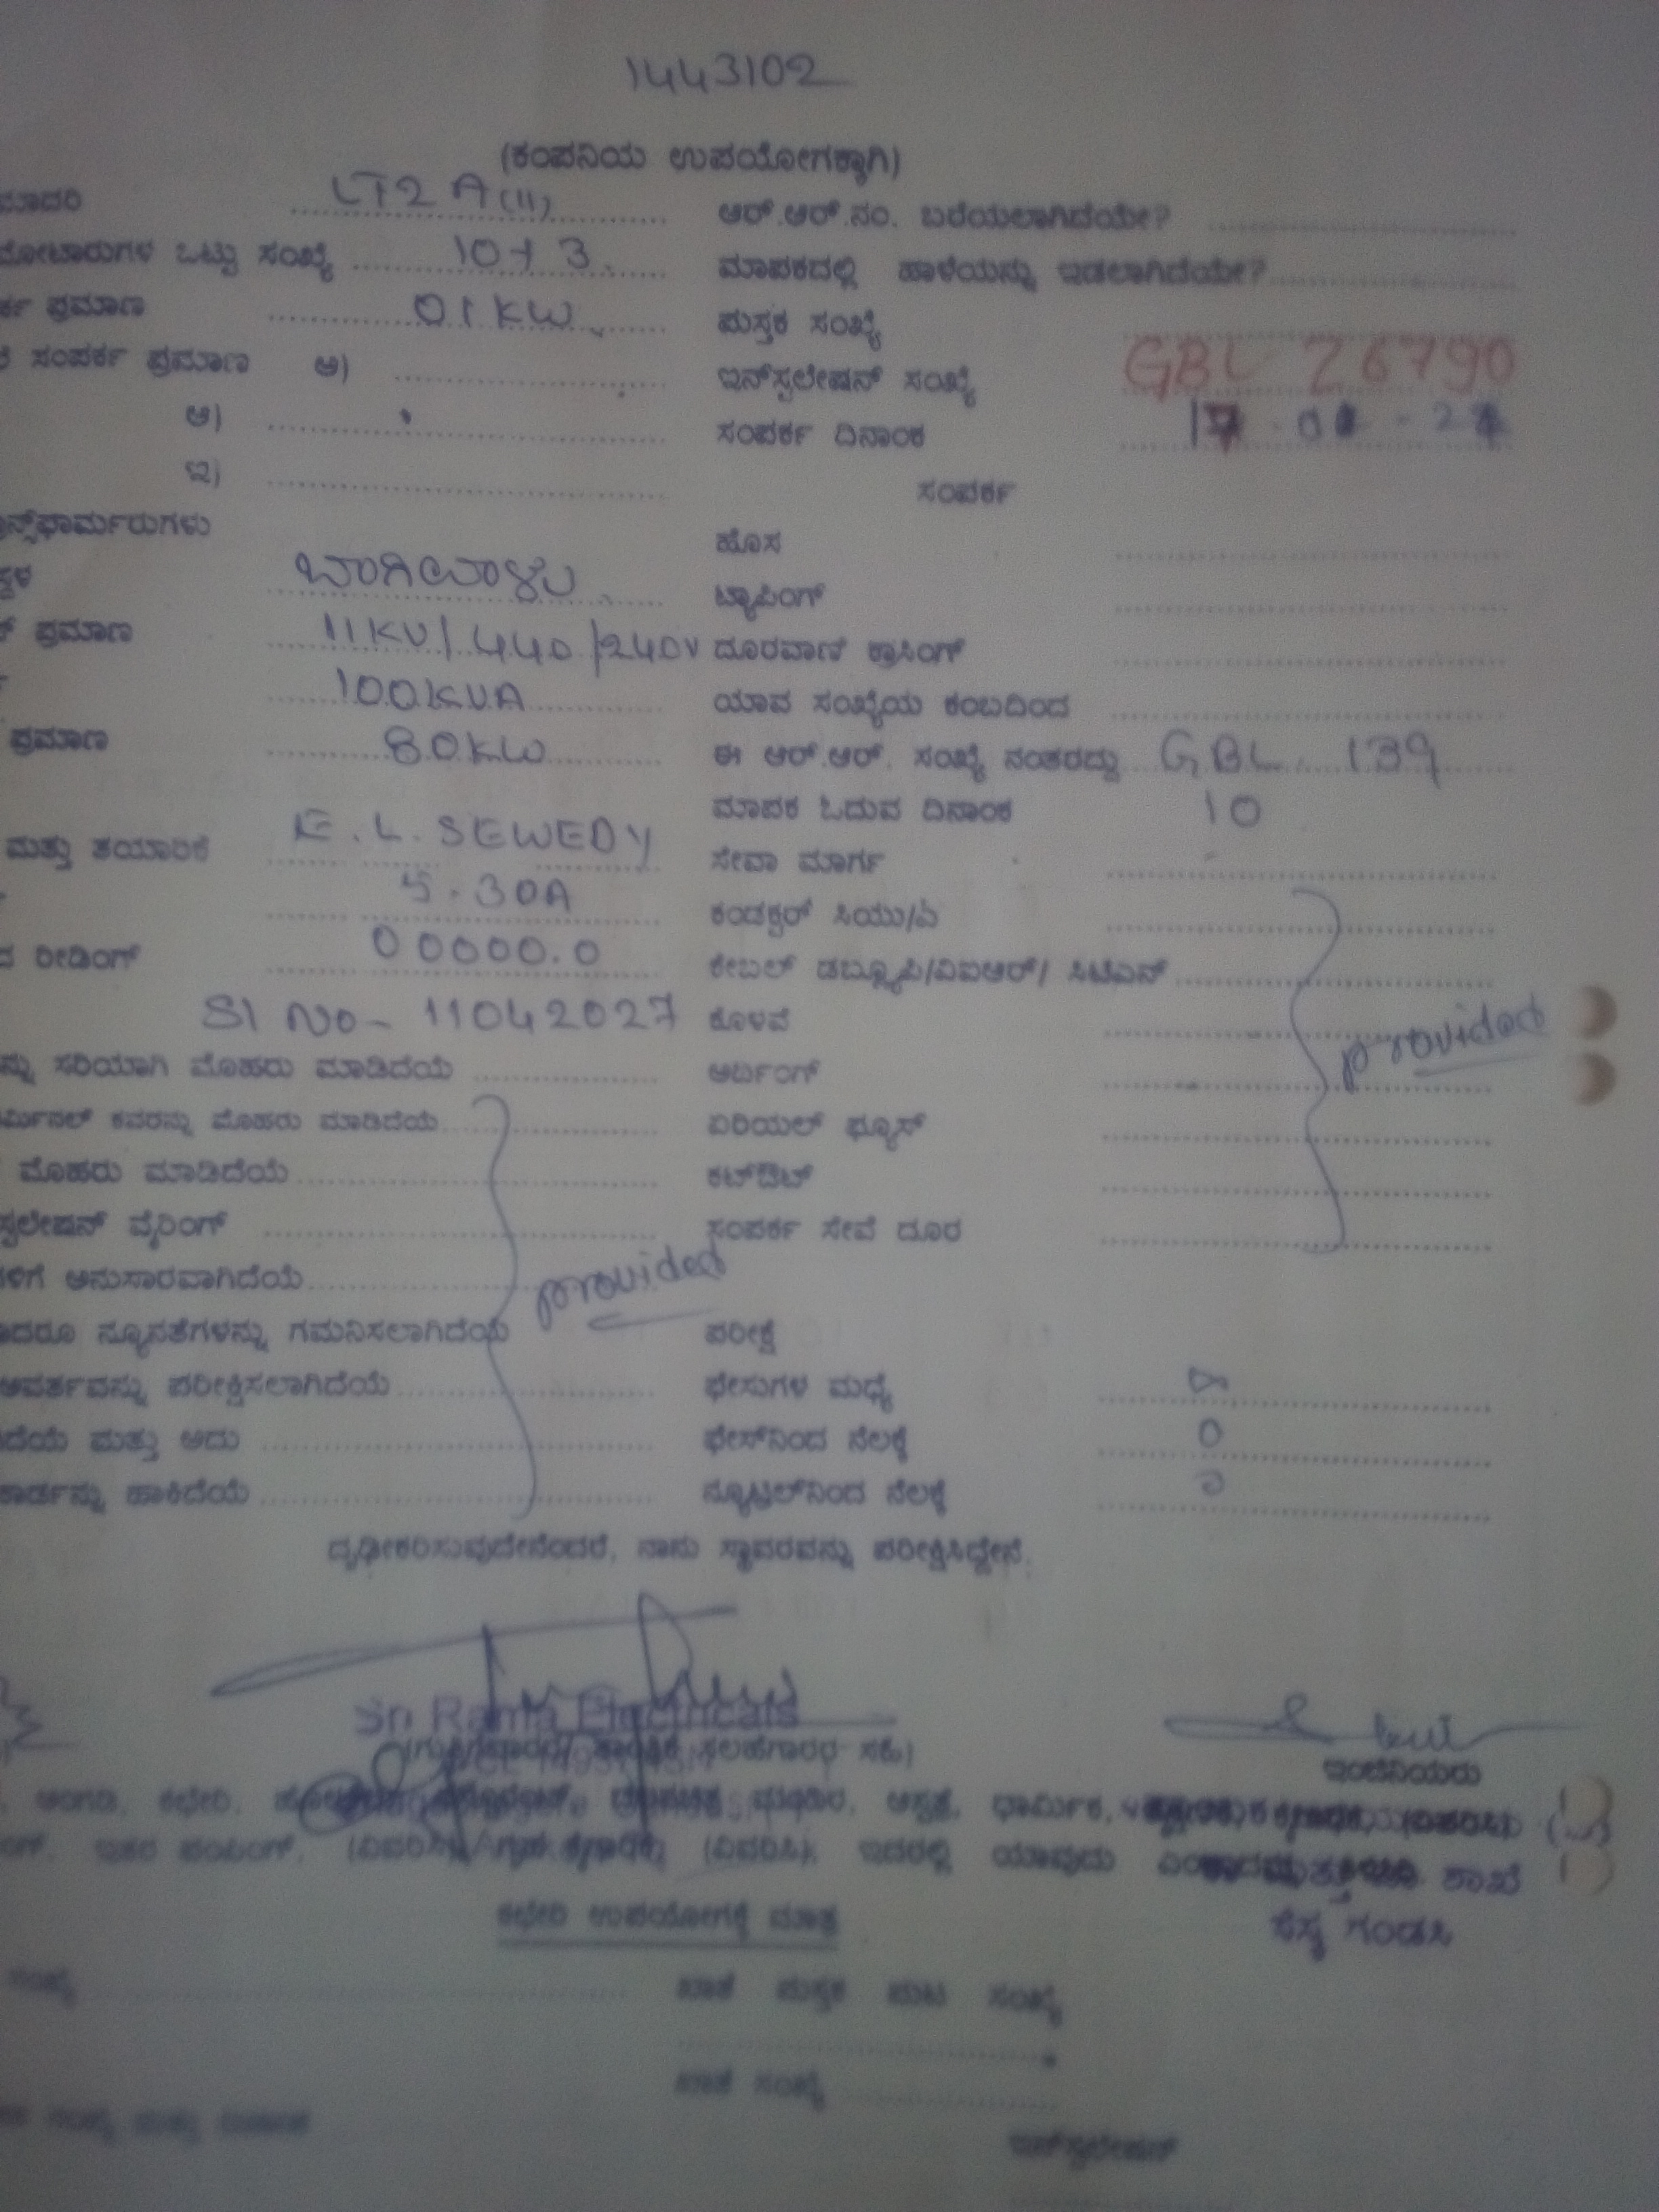 1443102
(ಕಂಪನಿಯ ಉಪಯೋಗಕ್ಕಾಗಿ)
ಮಾದರಿ LT2 A(II) ಆರ್.ಆರ್.ನಂ. ಬರೆಯಲಾಗಿದೆಯೇ?
ಮೋಟಾರುಗಳ ಒಟ್ಟು ಸಂಖ್ಯೆ 10+3 ಮಾಪಕದಲ್ಲಿ ಹಾಳೆಯನ್ನು ಇಡಲಾಗಿದೆಯೇ?
ಪ್ರಮಾಣ 01KW ಪುಸ್ತಕ ಸಂಖ್ಯೆ
ಸಂಪರ್ಕ ಪ್ರಮಾಣ ಅ) ಇನ್‌ಸ್ಟಲೇಷನ್ ಸಂಖ್ಯೆ GBL 26790
ಆ) ಸಂಪರ್ಕ ದಿನಾಂಕ
ಇ) ಸಂಪರ್ಕ
ನ್ಸ್‌ಫಾರ್ಮರುಗಳು ಹೊಸ
ಸ್ಥಳ ಬಾಗಿವಾಳು ಟ್ಯಾಪಿಂಗ್
ಪ್ರಮಾಣ 11KV/440/240V ದೂರವಾಣಿ ಕ್ರಾಸಿಂಗ್
100KVA ಯಾವ ಸಂಖ್ಯೆಯ ಕಂಬದಿಂದ
ಪ್ರಮಾಣ 80KW ಈ ಆರ್.ಆರ್. ಸಂಖ್ಯೆ ನಂತರದ್ದು GBL 139
ಮಾಪಕ ಓದುವ ದಿನಾಂಕ 10
ಮತ್ತು ತಯಾರಿಕೆ E.L.SEWEDY ಸೇವಾ ಮಾರ್ಗ
5-30A ಕಂಡಕ್ಟರ್ ಸಿಯು/ಎ
ರೀಡಿಂಗ್ 00000.0 ಕೇಬಲ್ ಡಬ್ಲ್ಯೂಪಿ/ವಿಐಆರ್/ ಸಿಟಿಎಸ್
Sl No- 11042027 ಕೊಳವೆ provided
ನ್ನು ಸರಿಯಾಗಿ ಮೊಹರು ಮಾಡಿದೆಯೆ ಅರ್ಥಿಂಗ್
ರ್ಮಿನಲ್ ಕವರನ್ನು ಮೊಹರು ಮಾಡಿದೆಯೆ ಏರಿಯಲ್ ಫ್ಯೂಸ್
ಮೊಹರು ಮಾಡಿದೆಯೆ ಕಟ್‌ಔಟ್
ಸ್ಟಲೇಷನ್ ವೈರಿಂಗ್ ಸಂಪರ್ಕ ಸೇವೆ ದೂರ
ಳಿಗೆ ಅನುಸಾರವಾಗಿದೆಯೆ provided
ದರೂ ನ್ಯೂನತೆಗಳನ್ನು ಗಮನಿಸಲಾಗಿದೆಯೆ ಪರೀಕ್ಷೆ
ಆವರ್ತವನ್ನು ಪರೀಕ್ಷಿಸಲಾಗಿದೆಯೆ ಫೇಸುಗಳ ಮಧ್ಯೆ
ದೆಯೆ ಮತ್ತು ಅದು ಫೇಸ್‌ನಿಂದ ನೆಲಕ್ಕೆ 0
ಕಾರ್ಡನ್ನು ಹಾಕಿದೆಯೆ ನ್ಯೂಟ್ರಲ್‌ನಿಂದ ನೆಲಕ್ಕೆ
ದೃಢೀಕರಿಸುವುದೇನೆಂದರೆ, ನಾನು ಸ್ಥಾವರವನ್ನು ಪರೀಕ್ಷಿಸಿದ್ದೇನೆ.
Sri Rama Electricals
ಸಲಹೆಗಾರರ ಸಹಿ)
ಇಂಜಿನಿಯರು
ಅಂಗಡಿ, ಕಛೇರಿ, ಆಸ್ಪತ್ರೆ, ಧಾರ್ಮಿಕ,
ಇತರ ಪಂಪಿಂಗ್, (ವಿವರಿಸಿ) (ವಿವರಿಸಿ) ಇದರಲ್ಲಿ ಯಾವುದು ಶಾಖೆ
ಕಛೇರಿ ಉಪಯೋಗಕ್ಕೆ ಮಾತ್ರ ಸೆಸ್ಕ ಗಂಡಸಿ
ಸಂಖ್ಯೆ ಖಾತೆ ಪುಸ್ತಕ ಪುಟ ಸಂಖ್ಯೆ
ಖಾತೆ ಸಂಖ್ಯೆ
ಇನ್‌ಸ್ಟಲೇಷನ್